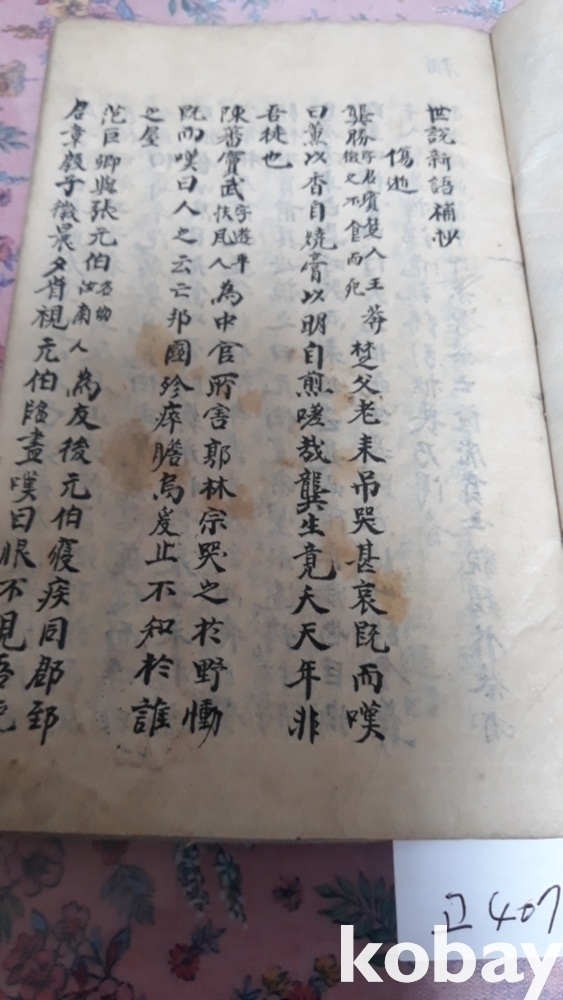 世說新語補抄
傷逝
龔勝字君賓楚人王莽徵之不食而死楚父老来吊哭甚哀既而嘆
曰薰以香自燒膏以明自煎嗟哉龔生竟夭天年非
吾徒也
陳蕃竇武字遊平扶風人為中官所害郭林宗哭之於野慟
既而嘆曰人之云亡邦國殄瘁瞻烏爰止不知於誰
之屋
范巨卿與張元伯名劭汝南人為友後元伯寢疾同郡郅
君章殷子徵晨夕省視元伯臨盡嘆曰恨不見吾死
고 407
kobay